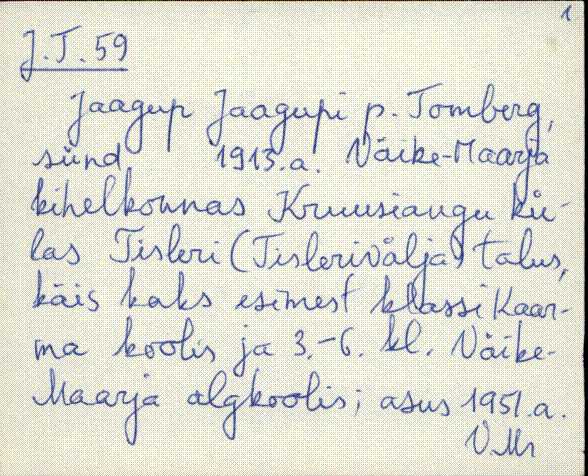 1
J.T. 59
Jaagup Jaagupi p. Tomberg,
sünd. 1913.a. Väike-Maarja
kihelkonnas Kruusiaugu kü-
las Tisleri (Tislerivälja) talus,
käis kaks esimest klassi Kaar-
ma koolis ja 3.-6. kl. Väike-
Maarja algkoolis; asus 1951.a.
V.Mr